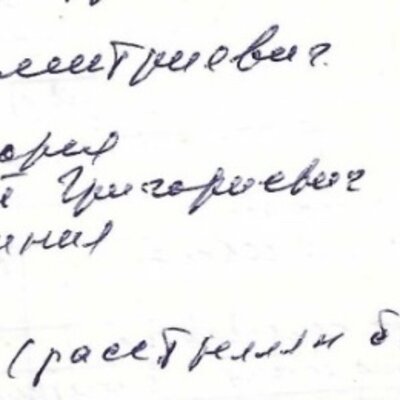 митриевич.
ория
й Григориевич
иния
(расстрелян б